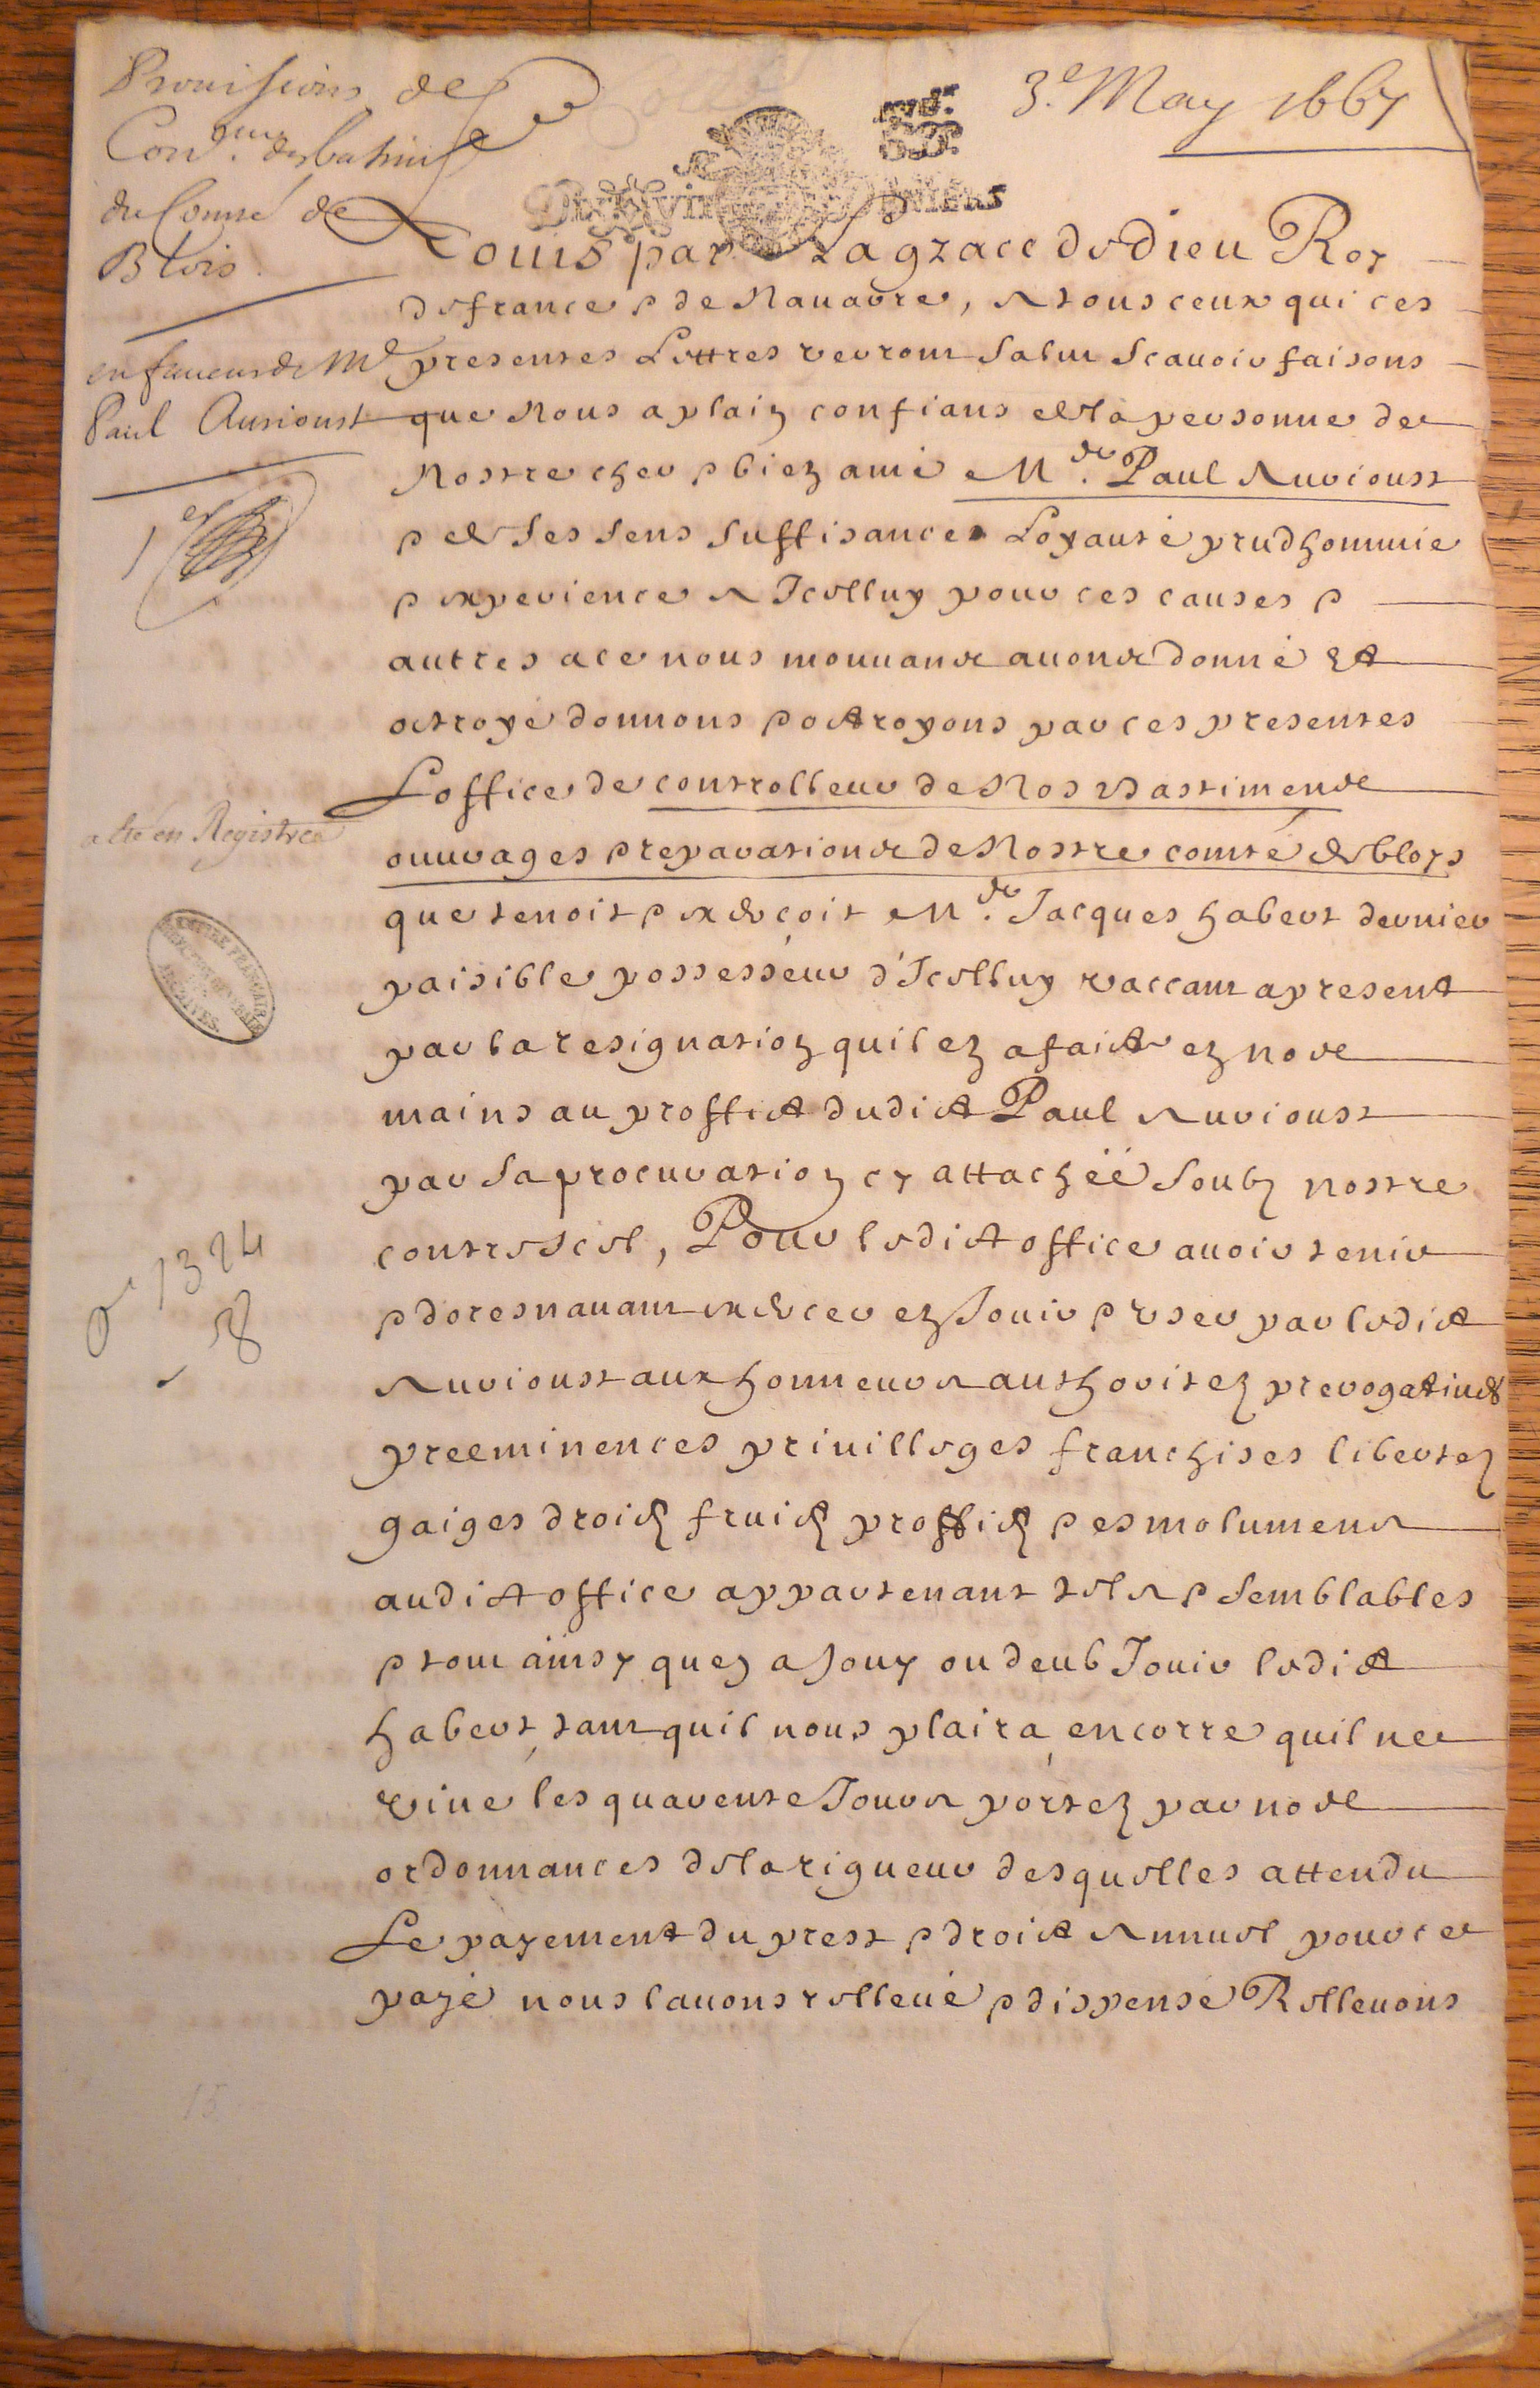 3.e May 1667
Provisions de
Con.eur des batim.
du Comté de
Blois.
en faveur de Me
Paul Aurioust
esté en Registrea
1324
Louis par La grace de dieu Roy
de france & de Navarre, A tous ceux qui ces
presentes Lettres verront Salut Scavoir faisons
que Nous a plain confians en la personne de
Nostre cher & bien amé M.re Paul Aurioust
& de ses sens suffisance Loyauté prudhommie
& experience A Icelluy pour ces causes &
autres a ce nous mouvans avons donné Et
octroyé donnons & octroyons par ces presentes
L'office de controlleur de Nos Bastimens
ouvrages & reparations de Nostre comté de bloys
que tenoit & exerçoit M.re Jacques habert dernier
paisible possesseur d'Icelluy vaccant a present
par la resignation quil en a faicte en nos
mains au proffict dudict Paul Aurioust
par sa procuration cy attachéé Soubz nostre
contrescel, Pour ledict office avoir tenir
& doresnavant exercer en Jouir & user par ledict
Aurioust aux honneurs authoritez prerogatives
preeminences privilleges franchises libertez
gaiges droictz fruictz proffictz & esmolumens
audict office appartenant tels & semblables
& tout ainsy quen a Jouy ou deub Jouir ledict
habert, tant quil nous plaira, encorre quil ne
vive les quarente Jours portez par nos
ordonnances de la rigueur desquelles attendu
Le payement du prest & droict Annuel pour ce
payé nous l'avons rellevé & dispensé Rellevons